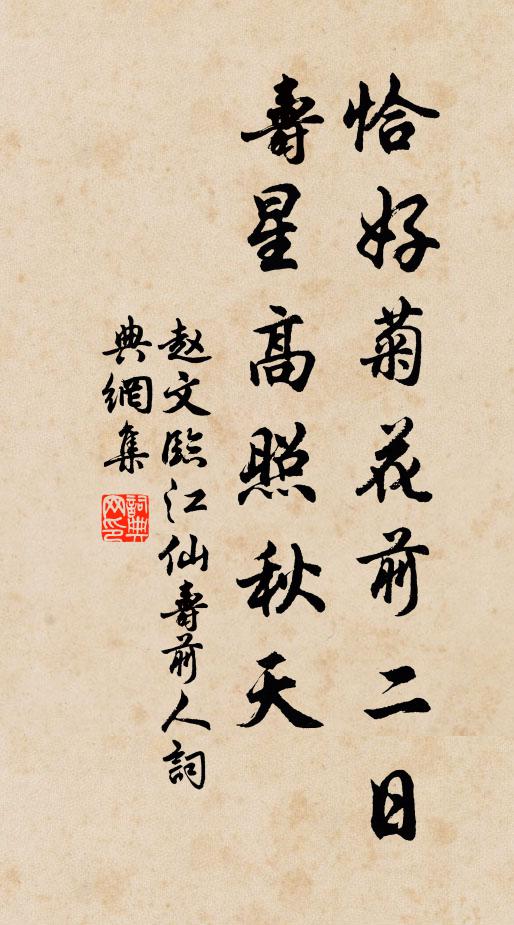 恰好菊花前二日
壽星高照秋天
赵文臨江仙壽前人詞
典網集
詞典网印